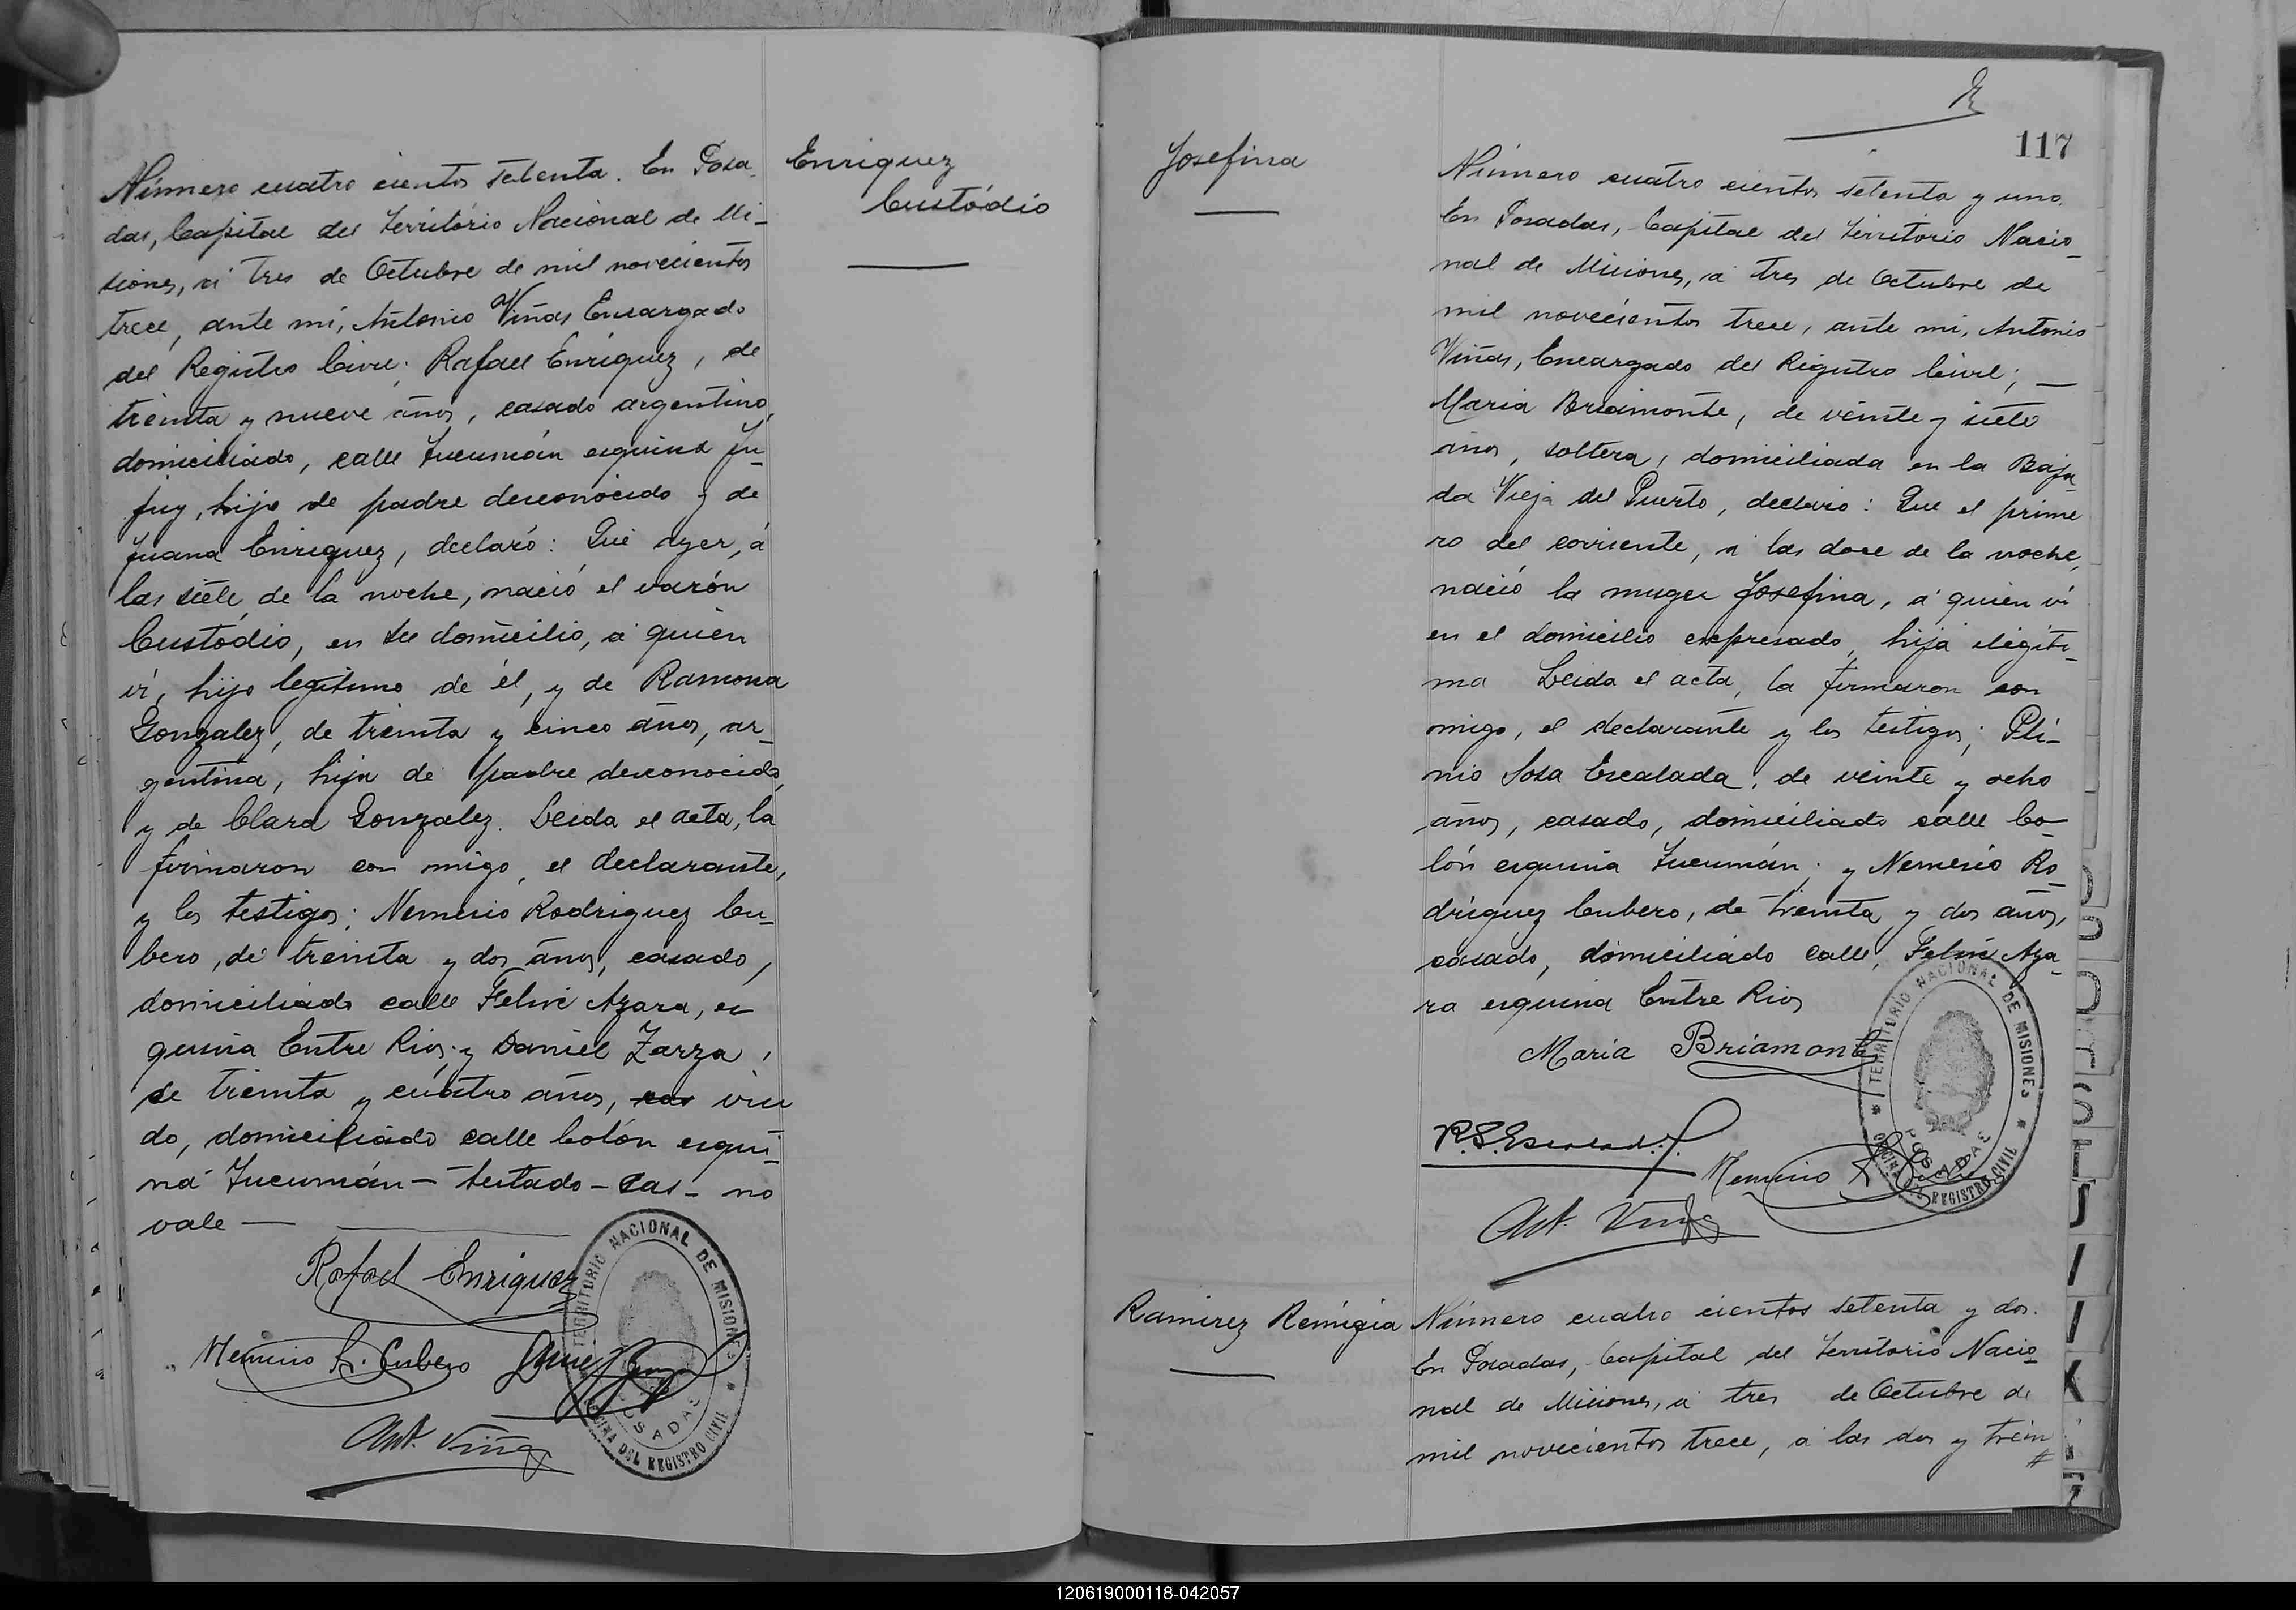 Número cuatro cientos setenta. En Posa_
das, Capital del Território Nacional de Mi_
siones, á tres de Octubre de mil novecientos
trece, ante mí, Antonio Viñas Encargado
del Registro Civil; Rafael Enriquez, de
treinta y nueve años, casado argentino,
domiciliado, calle Tucumán esquina Ju_
juy, hijo de padre desconocido y de
Juana Enriquez, declaró: Que ayer, á
las siete de la noche, nació el varón
Custódio, en su domicilio, a quien
ví, hijo legítimo de él, y de Ramona
Gonzalez, de treinta y cinco años, ar_
gentina, hija de padre desconocido,
y de Clara Gonzalez. Leida el acta, la
firmaron con migo, el declarante,
y los testigos; Nemesio Rodriguez Cu_
bero, de treinta y dos años, casado,
domiciliado calle Felix Azara, es
quina Entre Rios; y Daniel Zarza,
de treinta y cuatro años, cas viu
do, domiciliado calle Colón esqui_
na Tucumán – testado – cas – no
vale —
Rafael Enriquez
Nemesio R. Cubero
Ant. Viñas
TERRITORIO NACIONAL DE MISIONES
POSADAS
OFICINA DEL REGISTRO CIVIL
Enriquez
Custódio
Josefina
117
Número cuatro cientos setenta y uno.
En Posadas, Capital del Territorio Nacio_
nal de Misiones, á tres de Octubre de
mil novecientos trece, ante mi, Antonio
Viñas, Encargado del Registro Civil; —
Maria Briamonte, de veinte y siete
años, soltera, domiciliada en la Baja_
da Vieja del Puerto, declaró: Que el prime
ro del corriente, á las doce de la noche,
nació la muger Josefina, á quien ví
en el domicilio expresado, hija ilegíti_
ma Leida el acta, la firmaron con
migo, el declarante y los testigos; Pli_
nio Sosa Escalada, de veinte y ocho
años, casado, domiciliado calle Co_
lón esquina Tucumán; y Nemesio Ro_
driguez Cubero, de treinta y dos años,
casado, domiciliado calle, Felix Aza_
ra esquina Entre Rios
Maria Briamonte
P. S. Escalada
Nemesio R. Cubero
Ant. Viñas
TERRITORIO NACIONAL DE MISIONES
POSADAS
OFICINA DEL REGISTRO CIVIL
Ramirez Remigia
Número cuatro cientos setenta y dos.
En Posadas, Capital del Territorio Nacio_
nal de Misiones, á tres de Octubre de
mil novecientos trece, á las dos y trein
#
120619000118-042057